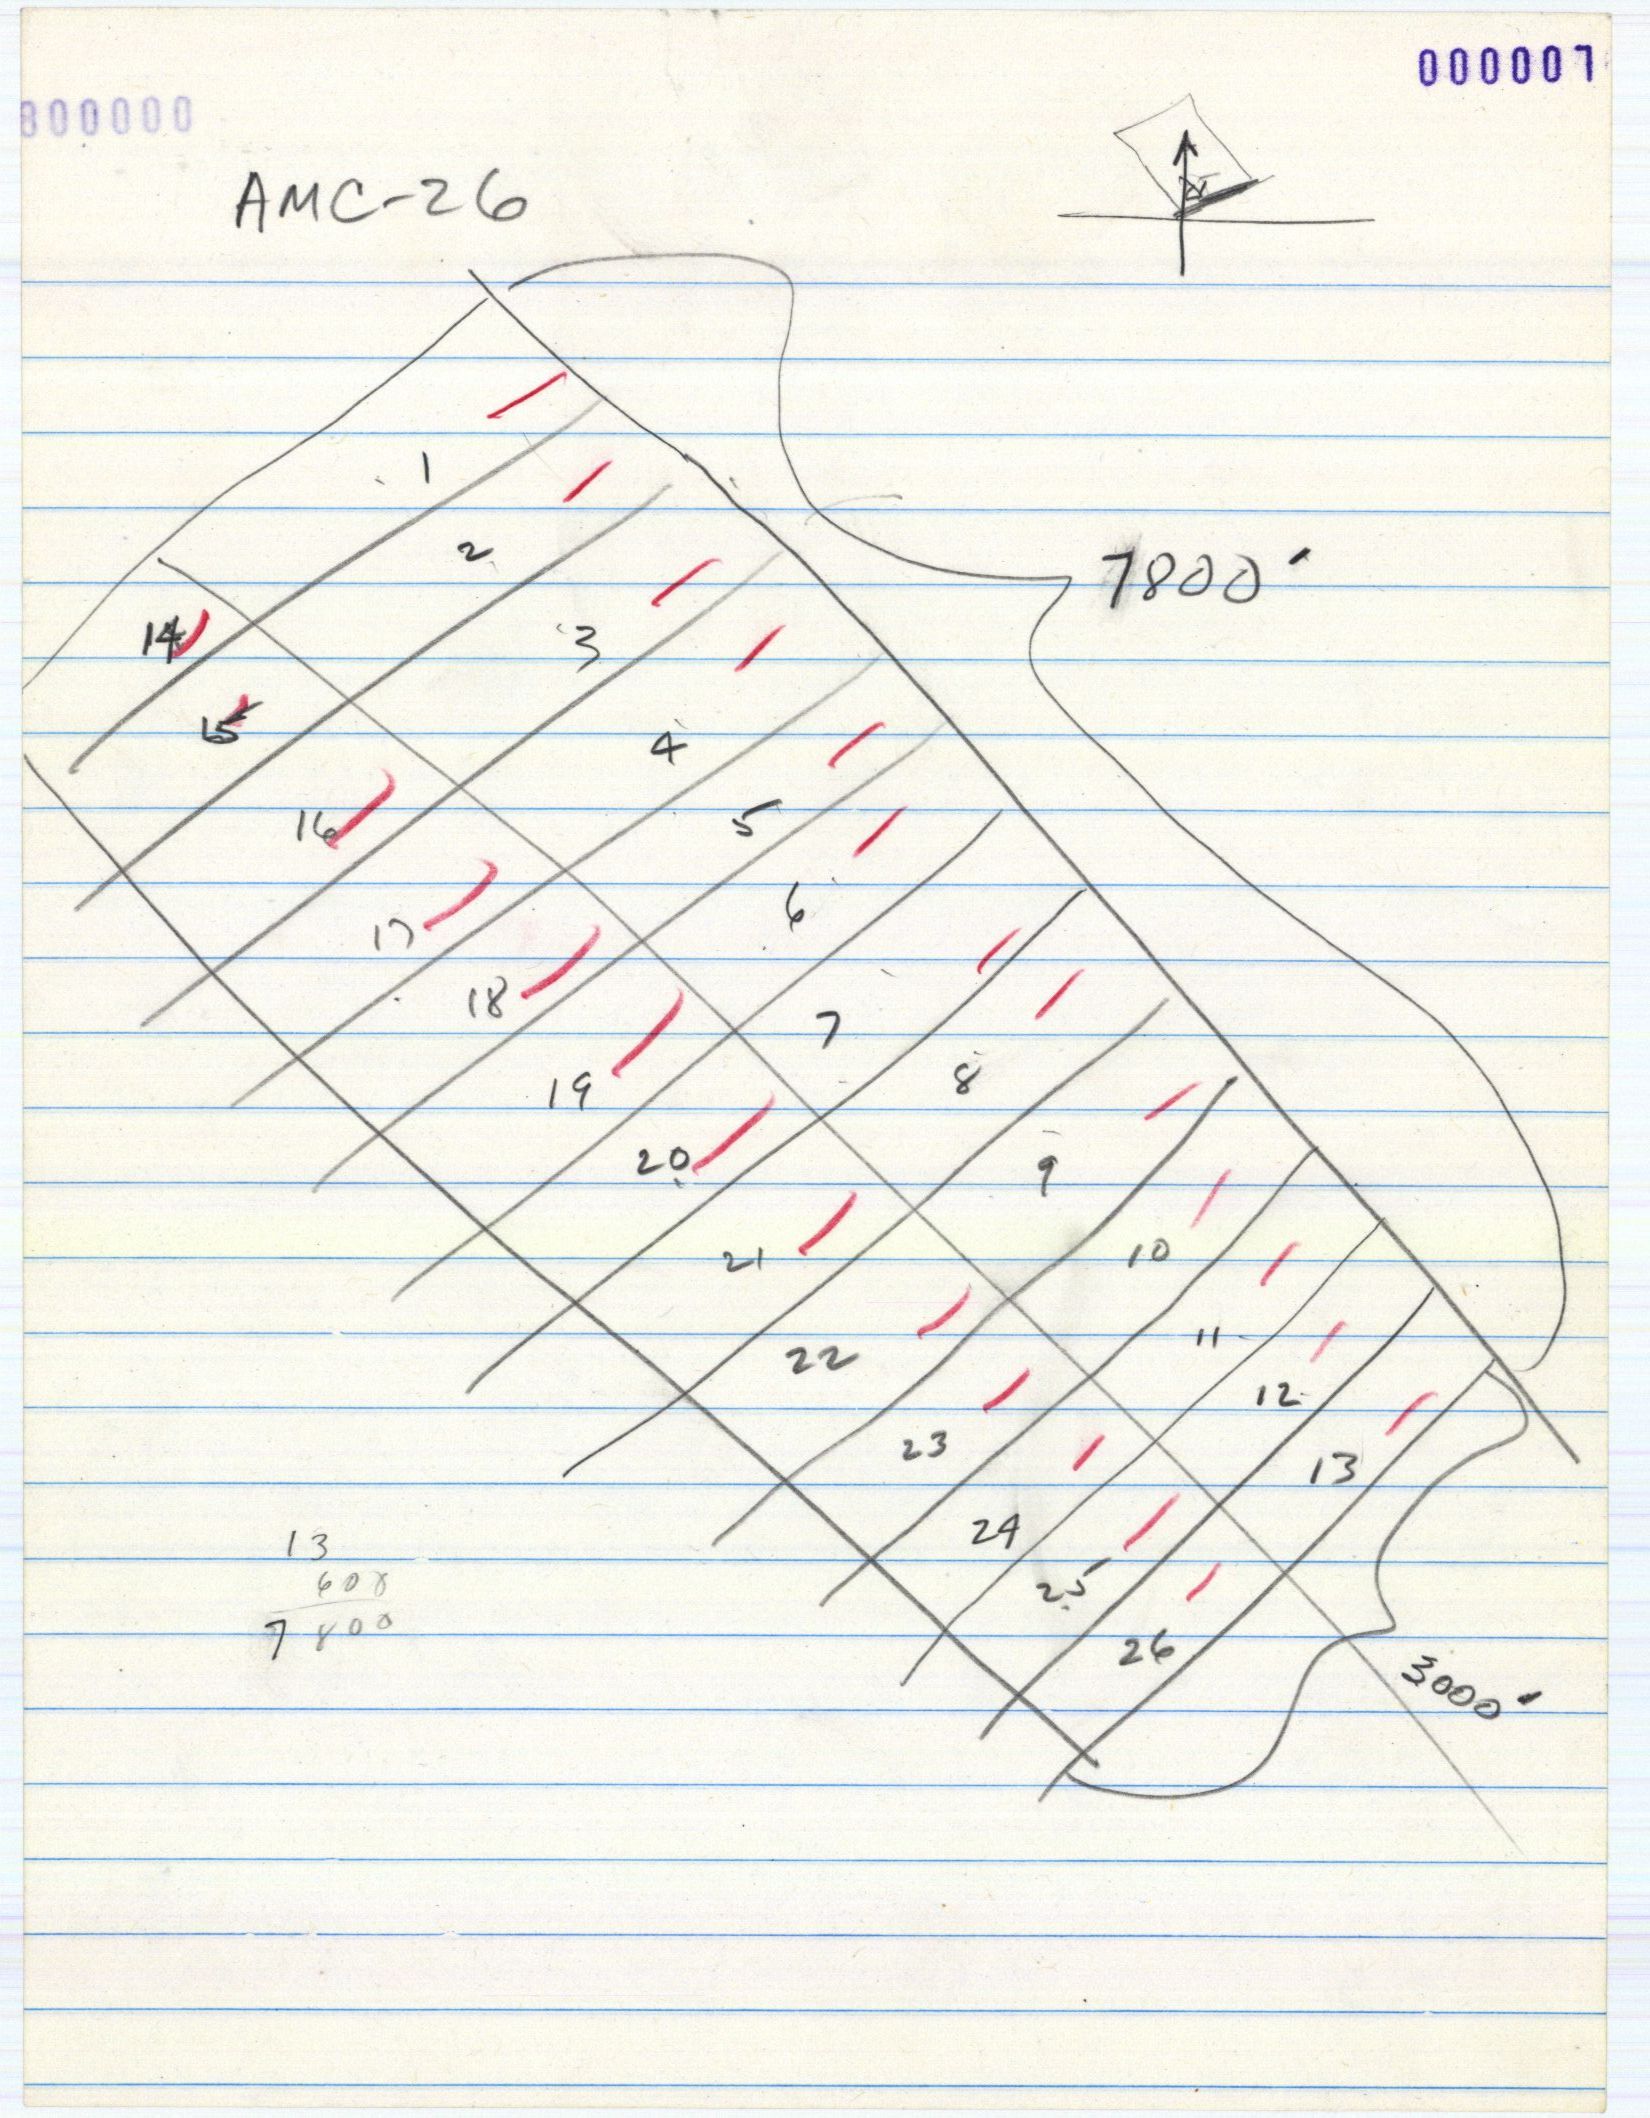 000007
800000
AMC-26
N
7800'
1
2
3
14
15
4
5
16
6
17
18
7
8
19
20
9
10
21
11
22
12
23
13
24
25
26
13
600
7800
3000'